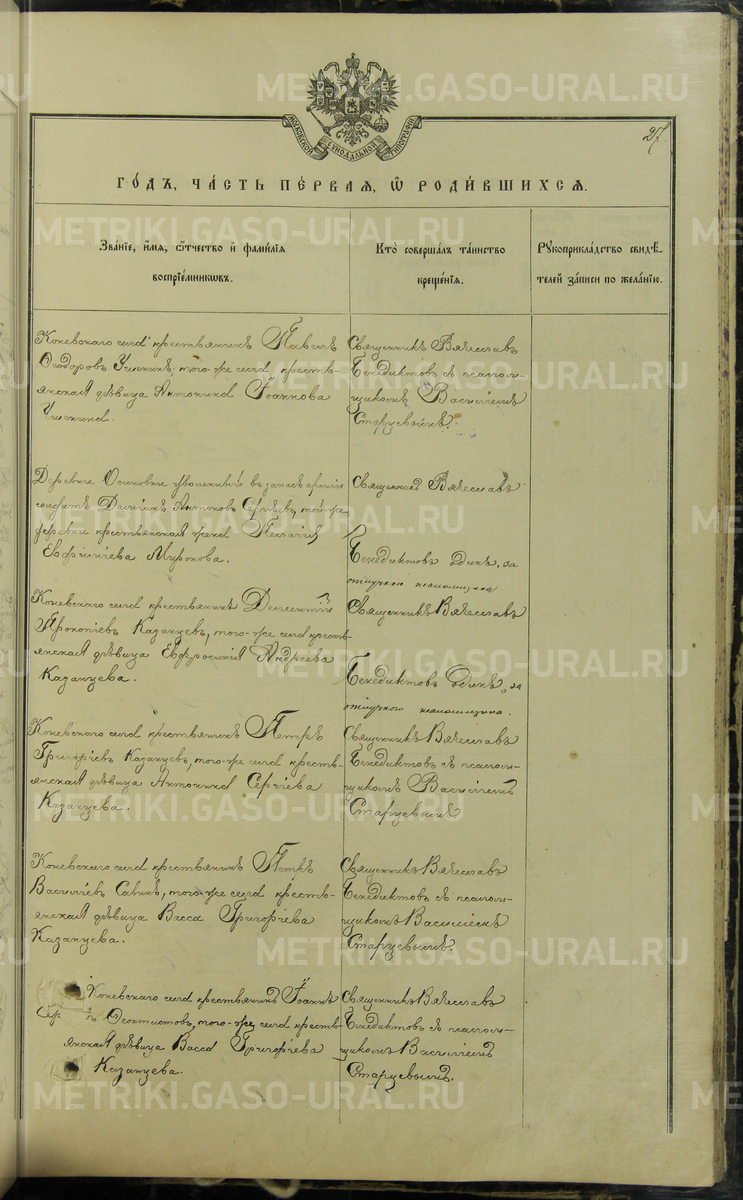 METRIKI.GASO-URAL.RU
МОСКОВСКОЙ СѴНОДАЛЬНОЙ ТИПОГРАФІИ
27.
ГО́ДЪ, ЧА́СТЬ ПЕ́РВАЯ, Ѡ РОДИ́ВШИХСЯ.
Зва́нїе, и́мя, о́тчество и҆ фами́лїя
воспрїе́мниковъ.
Кто̀ соверша́лъ та́инство
креще́нїя.
Рꙋкоприкла́дство свидѣ́-
телей за́писи по жела́нїю.
Коневскаго села крестьянинъ Павелъ
Ѳеодоровъ Ушенинъ, того-же села кресть-
янская дѣвица Антонина Іоаннова
Ушенина.
Священникъ Вячеславъ
Бенедиктовъ съ псаломъ-
щикомъ Василіемъ
Старцевымъ.
Деревни Осиновки уволенный въ запасъ арміи
солдатъ Даміанъ Антоновъ Сергѣевъ, той-же
деревни крестьянская жена Пелагія
Евфиміева Миронова.
Священникъ Вячеславъ
Бенедиктовъ одинъ, за
отлучкою псаломщика
Коневскаго села крестьянинъ Дементій
Прокопіевъ Казанцевъ, того-же села кресть-
янская дѣвица Евфросинія Андреева
Казанцева.
Священникъ Вячеславъ
Бенедиктовъ одинъ, за
отлучкою псаломщика.
Коневскаго села крестьянинъ Петръ
Григоріевъ Казанцевъ, того-же села кресть-
янская дѣвица Антонина Сергіева
Казанцева.
Священникъ Вячеславъ
Бенедиктовъ съ псаломъ-
щикомъ Василіемъ
Старцевымъ
Коневскаго села крестьянинъ Петръ
Василіевъ Савинъ, того-же села кресть-
янская дѣвица Васса Григоріева
Казанцева.
Священникъ Вячеславъ
Бенедиктовъ съ псаломъ-
щикомъ Василіемъ
Старцевымъ.
Коневскаго села крестьянинъ Іоаннъ
Ѳеоктистовъ, того-же села кресть-
янская дѣвица Васса Григоріева
Казанцева.
Священникъ Вячеславъ
Бенедиктовъ съ псаломъ-
щикомъ Василіемъ
Старцевымъ.